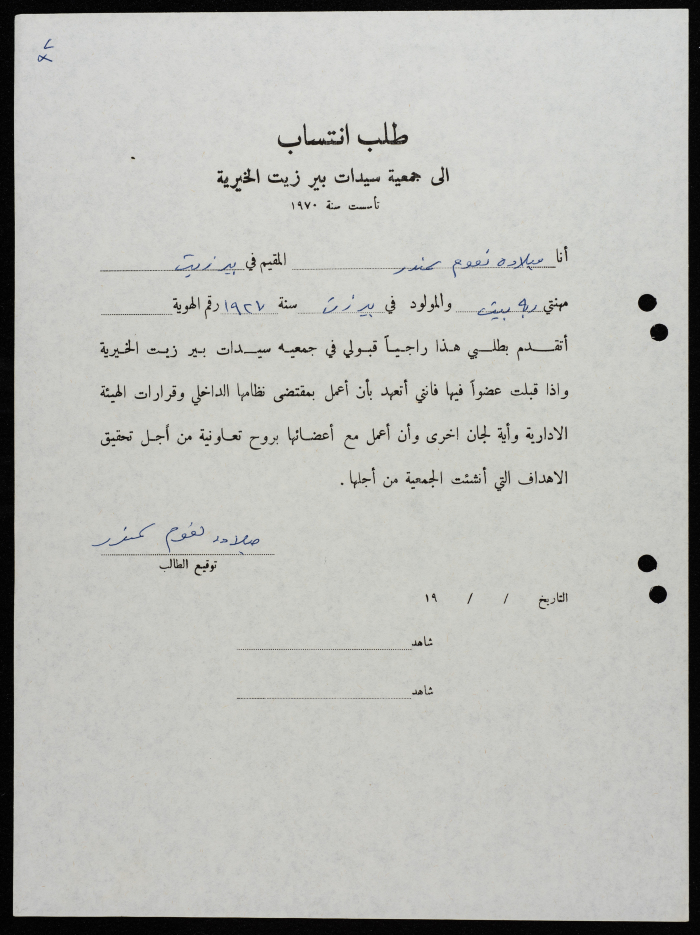 طلب انتساب
الى جمعية سيدات بير زيت الخيرية
تأسست سنة ١٩٧٠
أنا ميلاده نعوم المقيم في بير زيت
مهنتي ربة بيت والمولود في بير زيت سنة ١٩٢٧ رقم الهوية
أتقدم بطلبي هذا راجياً قبولي في جمعيه سيدات بير زيت الخيرية
واذا قبلت عضواً فيها فانني أتعهد بأن أعمل بمقتضى نظامها الداخلي وقرارات الهيئة
الادارية وأية لجان اخرى وأن أعمل مع أعضائها بروح تعاونية من أجل تحقيق
الاهداف التي أنشئت الجمعية من أجلها .
ميلاده نعوم
توقيع الطالب
التاريخ / / ١٩
شاهد
شاهد